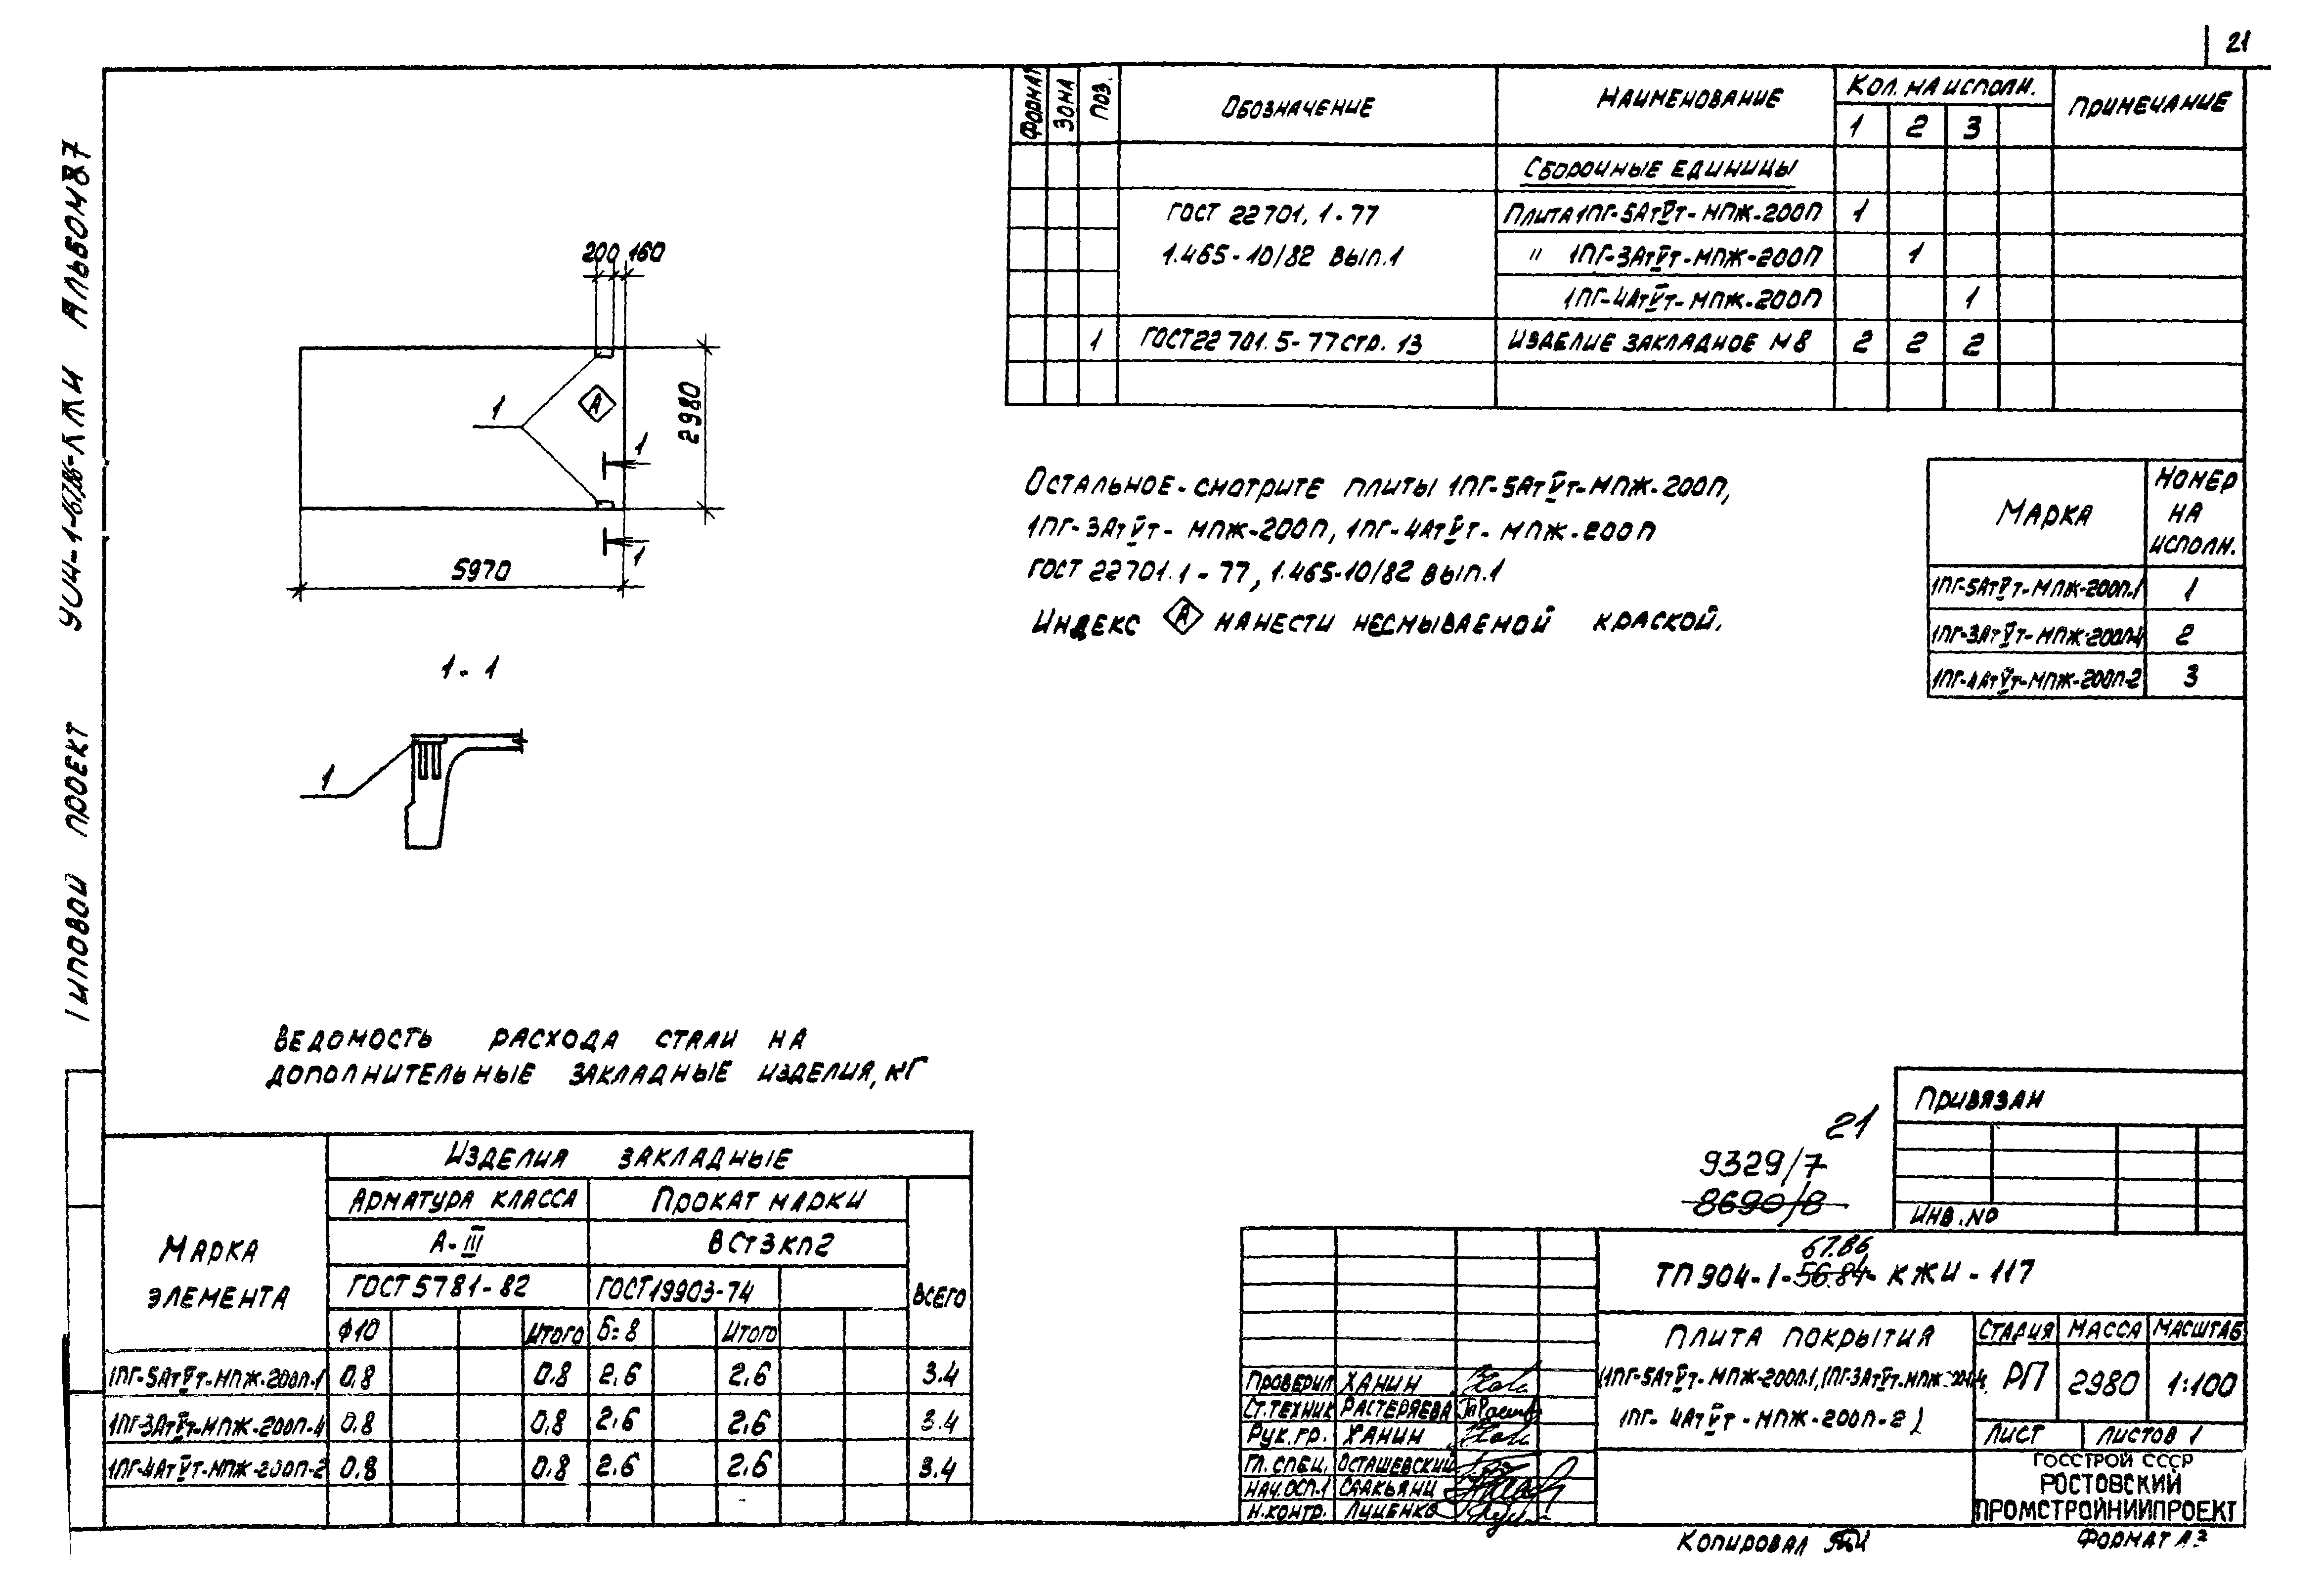 21
ТИПОВОЙ ПРОЕКТ АЛЬБОМ 8.7
ФОРМАТ ЗОНА ПОЗ. ОБОЗНАЧЕНИЕ НАИМЕНОВАНИЕ КОЛ. НА ИСПОЛН. ПРИМЕЧАНИЕ
1 2 3
СБОРОЧНЫЕ ЕДИНИЦЫ
ГОСТ 22701.1-77 ПЛИТА 1ПГ-5АтVт-МПЖ-200П 1
1.465-10/82 ВЫП.1 " 1ПГ-3АтVт-МПЖ-200П 1
1ПГ-4АтVт-МПЖ-200П 1
1 ГОСТ 22701.5-77 СТР. 13 ИЗДЕЛИЕ ЗАКЛАДНОЕ М8 2 2 2
200 160
1
А
2980
1
1
5970
1-1
1
ОСТАЛЬНОЕ-СМОТРИТЕ ПЛИТЫ 1ПГ-5АтVт-МПЖ-200П,
1ПГ-3АтVт-МПЖ-200П, 1ПГ-4АтVт-МПЖ-200П
ГОСТ 22701.1-77, 1.465-10/82 ВЫП.1
ИНДЕКС А НАНЕСТИ НЕСМЫВАЕМОЙ КРАСКОЙ.
МАРКА НОМЕР
НА
ИСПОЛН.
1ПГ-5АтVт-МПЖ-200П-1 1
1ПГ-3АтVт-МПЖ-200П-4 2
1ПГ-4АтVт-МПЖ-200П-2 3
ВЕДОМОСТЬ РАСХОДА СТАЛИ НА
ДОПОЛНИТЕЛЬНЫЕ ЗАКЛАДНЫЕ ИЗДЕЛИЯ, КГ
МАРКА
ЭЛЕМЕНТА
ИЗДЕЛИЯ ЗАКЛАДНЫЕ
АРМАТУРА КЛАССА ПРОКАТ МАРКИ
А-III ВСт3кп2
ГОСТ 5781-82 ГОСТ 19903-74 ВСЕГО
Ф10 ИТОГО Б=8 ИТОГО
1ПГ-5АтVт-МПЖ-200П-1 0.8 0.8 2.6 2.6 3.4
1ПГ-3АтVт-МПЖ-200П-4 0.8 0.8 2.6 2.6 3.4
1ПГ-4АтVт-МПЖ-200П-2 0.8 0.8 2.6 2.6 3.4
ПРИВЯЗАН
ИНВ.NО
21
9329/7
8690/8
67.86
ТП 904-1-56.84-КЖИ-117
ПЛИТА ПОКРЫТИЯ
(1ПГ-5АтVт-МПЖ-200П-1, 1ПГ-3АтVт-МПЖ-200П-4,
1ПГ-4АтVт-МПЖ-200П-2)
СТАДИЯ МАССА МАСШТАБ
РП 2980 1:100
ЛИСТ ЛИСТОВ 1
ГОССТРОЙ СССР
РОСТОВСКИЙ
ПРОМСТРОЙНИИПРОЕКТ
ПРОВЕРИЛ ХАНИН
СТ.ТЕХНИК РАСТЕРЯЕВА
РУК.ГР. ХАНИН
ГЛ.СПЕЦ. ОСТАШЕВСКИЙ
НАЧ.ОСП-1 СААКЬЯНЦ
Н.КОНТР. ЛУЦЕНКО
КОПИРОВАЛ
ФОРМАТ А3